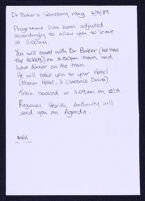 Dr Baker's Secretary rang
Programme has been adjusted
accordingly to allow you to leave
at
You will travel with Dr Baker (he has
the tickets) on 5.50pm train, and
have dinner on the train.
He will take you to your Hotel
(Manor Hotel, Clarence Drive).
Train booked
Regional Health Authority will
send you an Agenda.